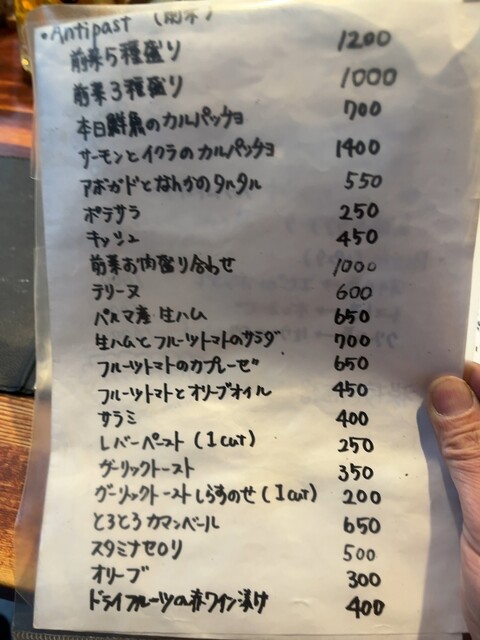 ・Antipast (前菜)
前菜5種盛り 1200
前菜3種盛り 1000
本日鮮魚のカルパッチョ 700
サーモンとイクラのカルパッチョ 1400
アボガドとなんかのタルタル 550
ポテサラ 250
キッシュ 450
前菜お肉盛り合わせ 1000
テリーヌ 600
パルマ産 生ハム 650
生ハムとフルーツトマトのサラダ 700
フルーツトマトのカプレーゼ 650
フルーツトマトとオリーブオイル 450
サラミ 400
レバーペースト (1cut) 250
ガーリックトースト 350
ガーリックトーストしらすのせ (1cut) 200
とろとろカマンベール 650
スタミナセロリ 500
オリーブ 300
ドライフルーツの赤ワイン漬け 400